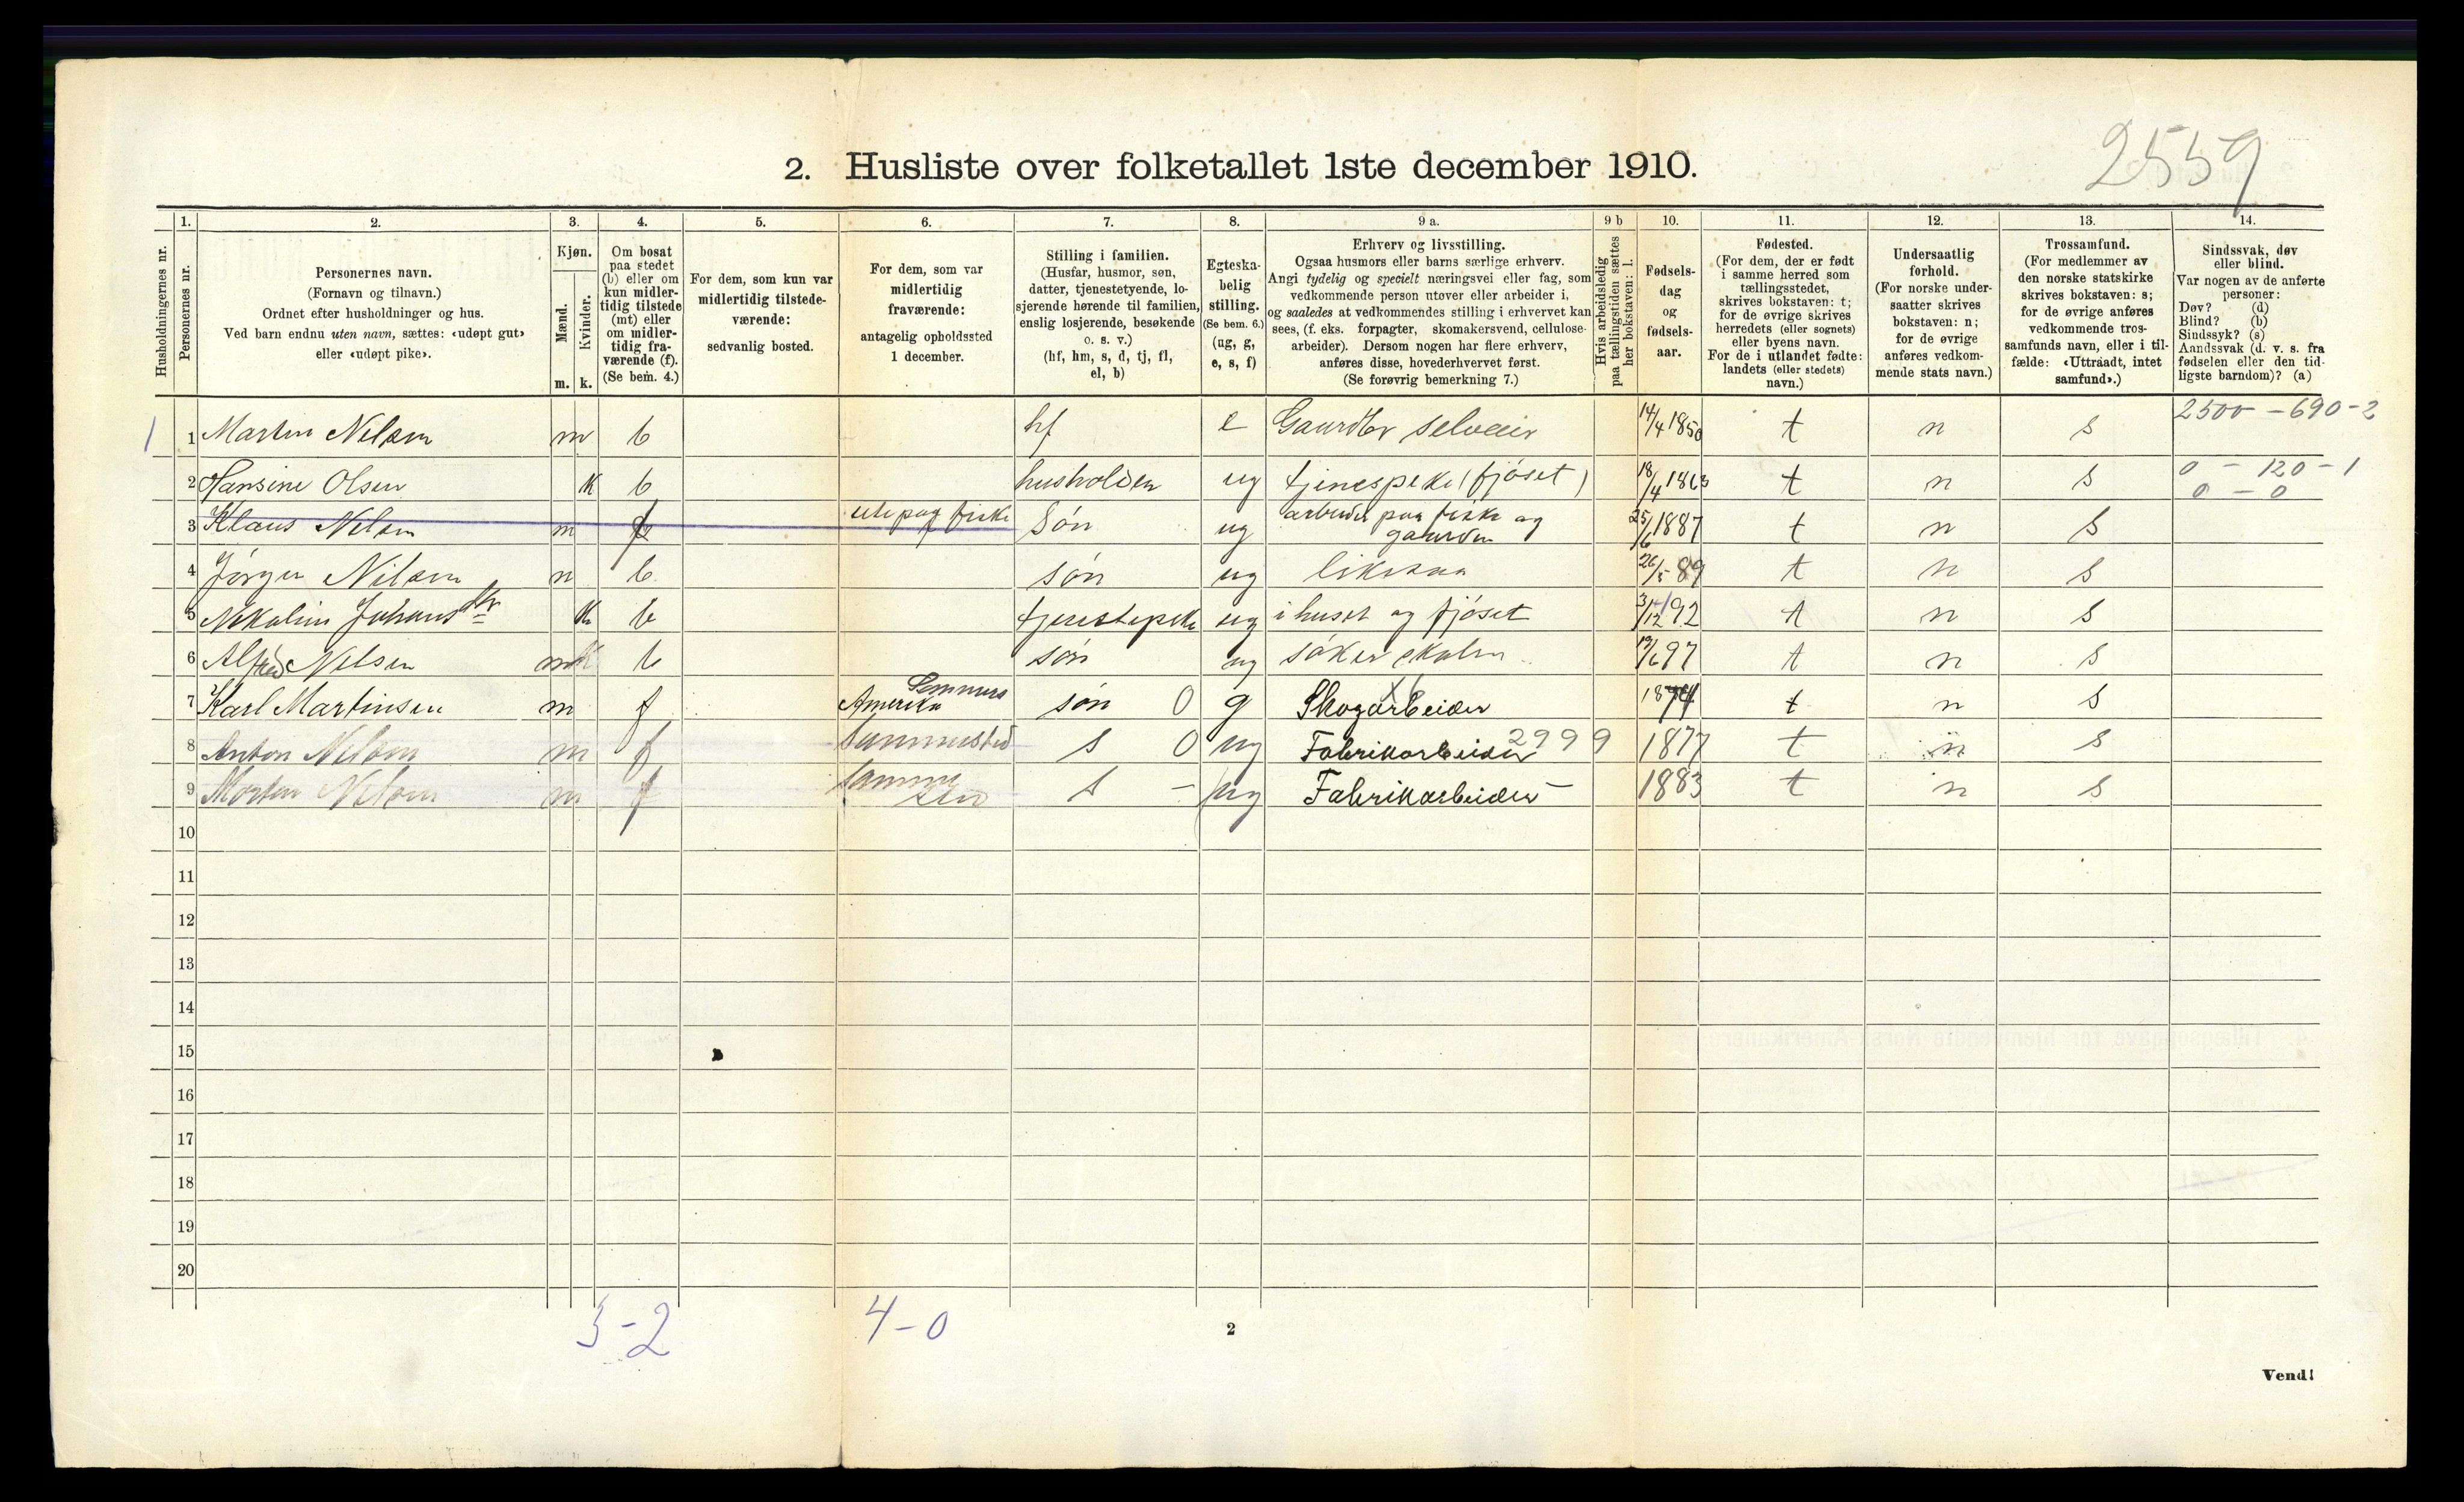 2559
2. Husliste over folketallet 1ste december 1910.
Husholdningernes nr.
1.
Personernes nr.
2.
Personernes navn.
(Fornavn og tilnavn.)
Ordnet efter husholdninger og hus.
Ved barn endnu uten navn, sættes: «udøpt gut»
eller «udøpt pike».
3.
Kjøn.
Mænd.
Kvinder.
m. k.
4.
Om bosat
paa stedet
(b) eller om
kun midler-
tidig tilstede
(mt) eller
om midler-
tidig fra-
værende (f).
(Se bem. 4.)
5.
For dem, som kun var
midlertidig tilstede-
værende:
sedvanlig bosted.
6.
For dem, som var
midlertidig
fraværende:
antagelig opholdssted
1 december.
7.
Stilling i familien.
(Husfar, husmor, søn,
datter, tjenestetyende, lo-
sjerende hørende til familien,
enslig losjerende, besøkende
o. s. v.)
(hf, hm, s, d, tj, fl,
el, b)
8.
Egteska-
belig
stilling.
(Se bem. 6.)
(ug, g,
e, s, f)
9 a.
Erhverv og livsstilling.
Ogsaa husmors eller barns særlige erhverv.
Angi tydelig og specielt næringsvei eller fag, som
vedkommende person utøver eller arbeider i,
og saaledes at vedkommendes stilling i erhvervet kan
sees, (f. eks. forpagter, skomakersvend, cellulose-
arbeider). Dersom nogen har flere erhverv,
anføres disse, hovederhvervet først.
(Se forøvrig bemerkning 7.)
9 b
Hvis arbeidsledig
paa tællingstiden sættes
her bokstaven: l.
10.
Fødsels-
dag
og
fødsels-
aar.
11.
Fødested.
(For dem, der er født
i samme herred som
tællingsstedet,
skrives bokstaven: t;
for de øvrige skrives
herredets (eller sognets)
eller byens navn.
For de i utlandet fødte:
landets (eller stedets)
navn.)
12.
Undersaatlig
forhold.
(For norske under-
saatter skrives
bokstaven: n;
for de øvrige
anføres vedkom-
mende stats navn.)
13.
Trossamfund.
(For medlemmer av
den norske statskirke
skrives bokstaven: s;
for de øvrige anføres
vedkommende tros-
samfunds navn, eller i til-
fælde: «Uttraadt, intet
samfund».)
14.
Sindssvak, døv
eller blind.
Var nogen av de anførte
personer:
Døv? (d)
Blind? (b)
Sindssyk? (s)
Aandssvak (d. v. s. fra
fødselen eller den tid-
ligste barndom)? (a)
1 1 Martin Nilsen m b hf e Gaardbr selveier 14/4 1850 t n s 2500 - 690 - 2
2 Hansine Olsen k b husholden ug tjenespeke (fjöset) 18/4 1863 t n s 0 - 120 - 1
0 - 0
3 Klaus Nilsen m f ute paa fiske Sön ug arbeider paa fiske og gaarden 25/6 1887 t n s
4 Jörgen Nilsen m b sön ug likesaa 26/5 89 t n s
5 Nikoline Johansdtr k b tjenestepeke ug i huset og fjöset 3/12 92 t n s
6 Alfred Nilsen m b sön ug söker skolen 19/6 97 t n s
7 Karl Martinsen m f Amerika sön 0 g Skogarbeider 1874 t n s
8 Anton Nilsen m f Sammested s 0 ug Fabrikarbeider 2999 1877 t n s
9 Morten Nilsen m f Samme sted s - ug Fabrikarbeider 1883 t n s
10
11
12
13
14
15
16
17
18
19
20
5 - 2 4 - 0
2
Vend!